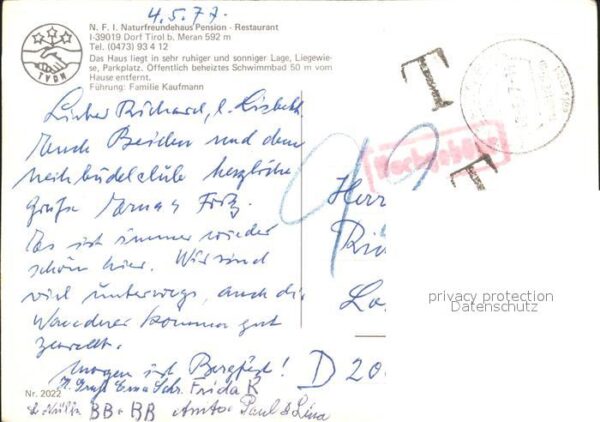 4.5.77
N. F. I. Naturfreundehaus Pension - Restaurant
I-39019 Dorf Tirol b. Meran 592 m
Tel. (0473) 93 4 12
Das Haus liegt in sehr ruhiger und sonniger Lage, Liegewie-
se, Parkplatz. Öffentlich beheiztes Schwimmbad 50 m vom
Hause entfernt.
Führung: Familie Kaufmann
TVDN
T
T
Nachgebühr
Lieber Richard, l. Lisbeth
Euch Beiden und dem
herzliche
Grüße Erna & Fritz.
Es ist immer wieder
schön hier. Wir sind
viel unterwegs, auch die
Wanderer kommen gut
zurecht.
Morgen ist Bergfest!
Frida R
BB + BB Paul & Lina
Nr. 2022
Herr
Ric
D 20
privacy protection
Datenschutz